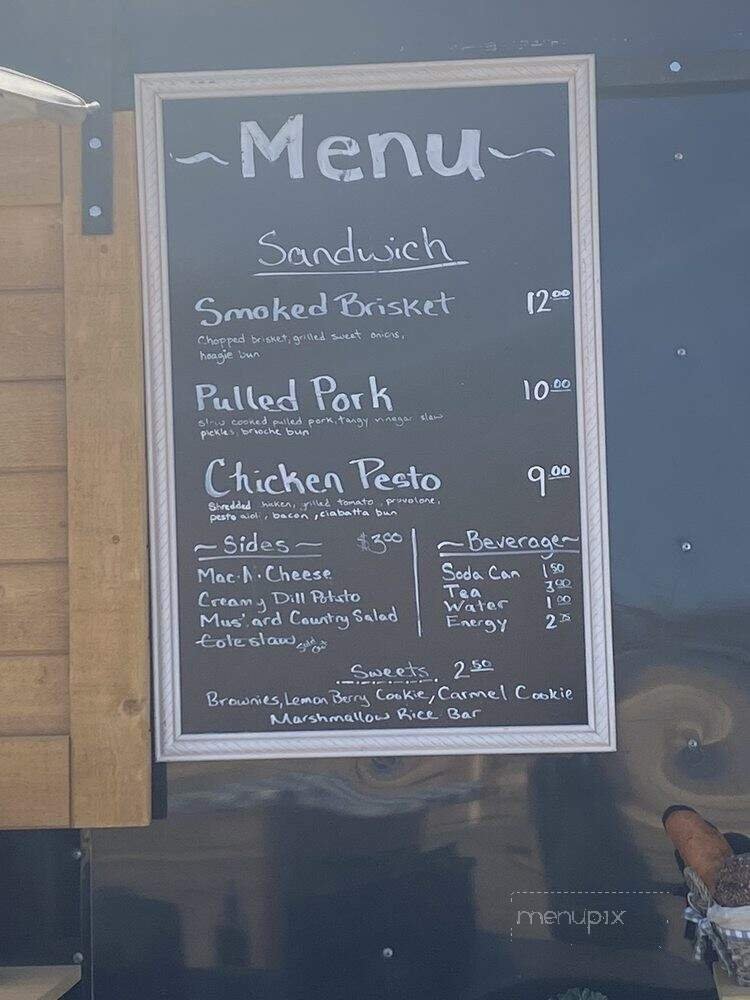 ~ Menu ~
Sandwich
Smoked Brisket 12.00
Chopped brisket, grilled sweet onions,
hoagie bun
Pulled Pork 10.00
slow cooked pulled pork, tangy vinegar slaw
pickles, brioche bun
Chicken Pesto 9.00
Shredded hicken, grilled tomato, provolone,
pesto aioli, bacon, ciabatta bun
~ Sides ~ $3.00
Mac. N. Cheese
Creamy Dill Potato
Mus'ard Country Salad
Coleslaw Sold Out
~ Beverage ~
Soda Can 1.50
Tea 3.00
Water 1.00
Energy 2.75
Sweets. 2.50
Brownies, Lemon Berry Cookie, Carmel Cookie
Marshmallow Rice Bar
menupix